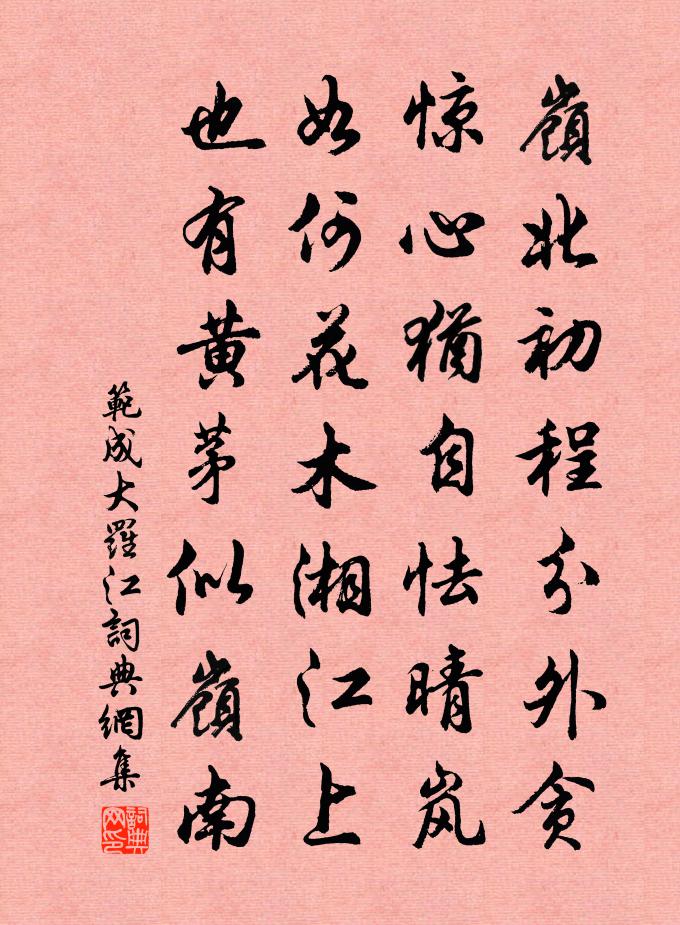 嶺北初程分外贪
惊心猶自怯晴岚
如何花木湘江上
也有黄茅似嶺南
範成大羅江詞典網集
詞典网印